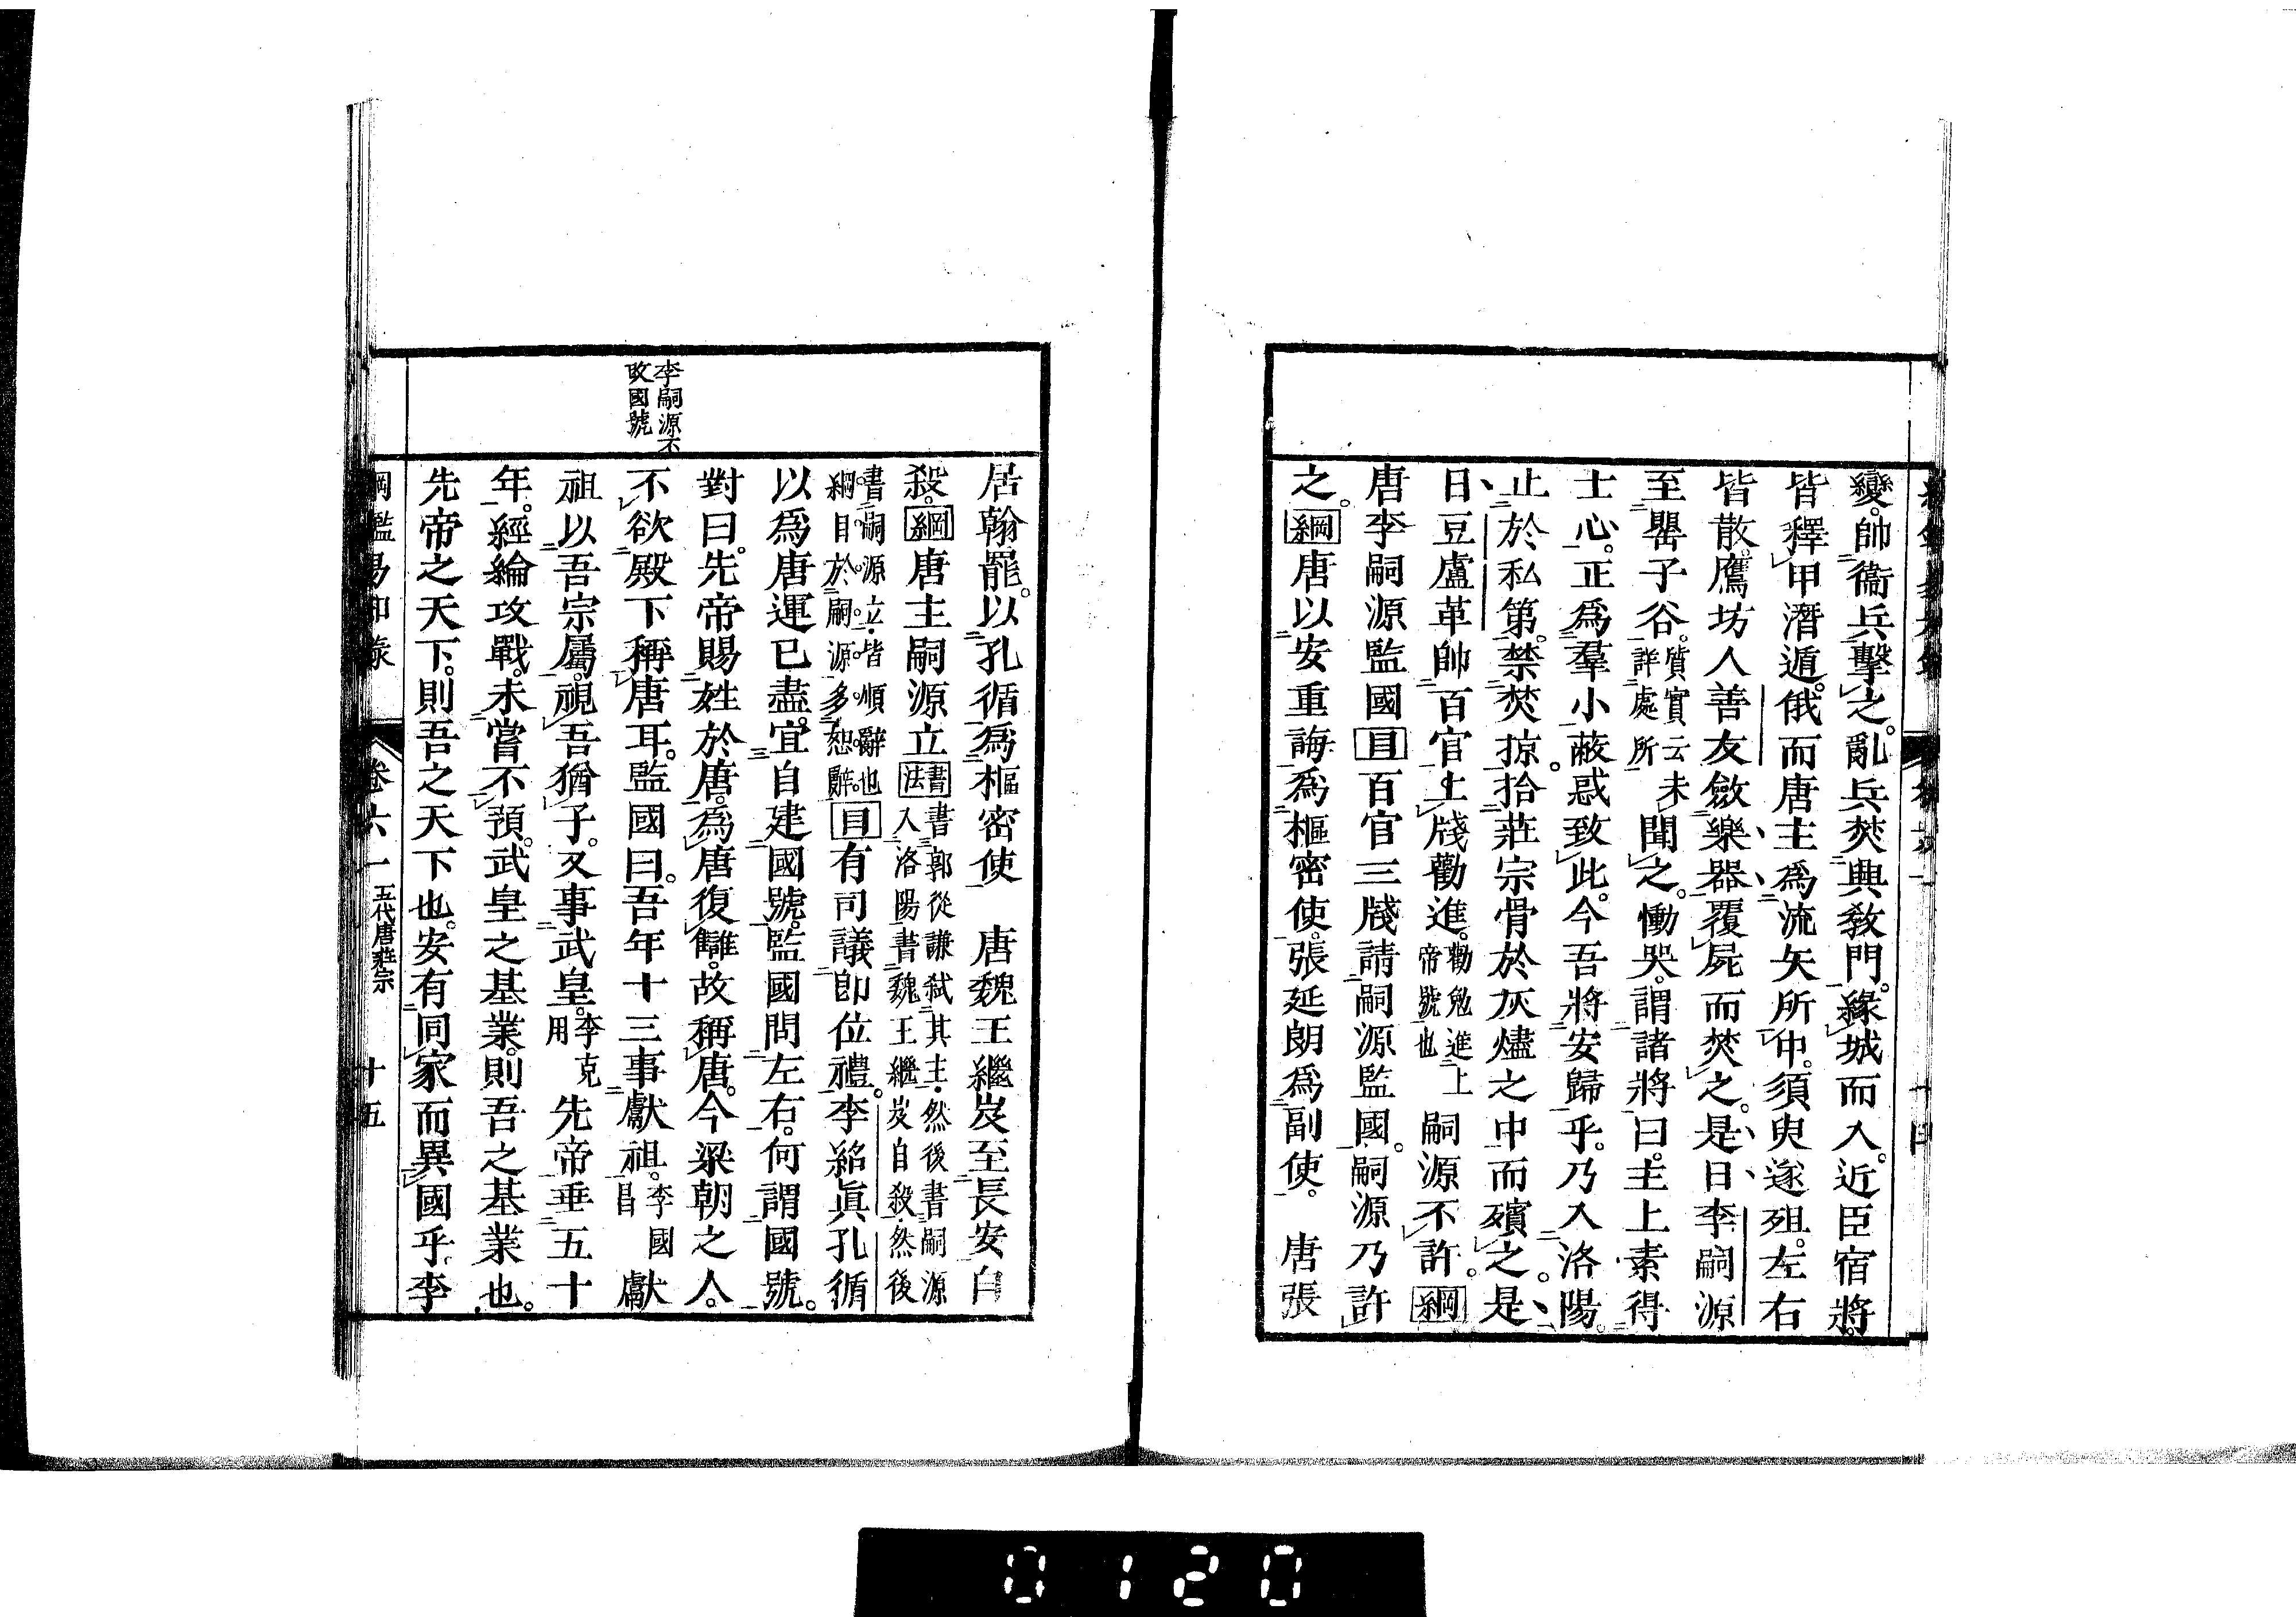 變。帥衞兵擊之。亂兵焚興敎門。緣城而入。近臣宿將。
皆釋甲潛遁。俄而唐主爲流矢所中。須臾遂殂。左右
皆散。鷹坊人善友斂樂器覆屍而焚之。是日李嗣源
至罌子谷。質實云未詳處所聞之。慟哭。謂諸將曰。主上素得
士心。正爲羣小蔽惑致此。今吾將安歸乎。乃入洛陽。
止於私第。禁焚掠。拾莊宗骨於灰燼之中而殯之。是
日豆盧革帥百官上牋勸進。勸勉進上帝號也嗣源不許。綱
唐李嗣源監國目百官三牋請嗣源監國。嗣源乃許
之。綱唐以安重誨爲樞密使。張延朗爲副使。 唐張
李嗣源不
改國號
居翰罷。以孔循爲樞密使 唐魏王繼岌至長安自
殺。綱唐主嗣源立書法書郭從謙弑其主。然後書嗣源入洛陽。書魏王繼岌自殺。然後
書嗣源立。皆順辭也。綱目於嗣源多恕辭。目有司議卽位禮。李紹眞孔循
以爲唐運已盡。宜自建國號。監國問左右。何謂國號。
對曰。先帝賜姓於唐。爲唐復讎。故稱唐。今梁朝之人。
不欲殿下稱唐耳。監國曰。吾年十三事獻祖。李國昌獻
祖以吾宗屬。視吾猶子。又事武皇。李克用先帝垂五十
年。經綸攻戰。未嘗不預。武皇之基業。則吾之基業也。
先帝之天下。則吾之天下也。安有同家而異國乎。李
綱鑑易知錄 卷六一 五代唐莊宗 十五
0120